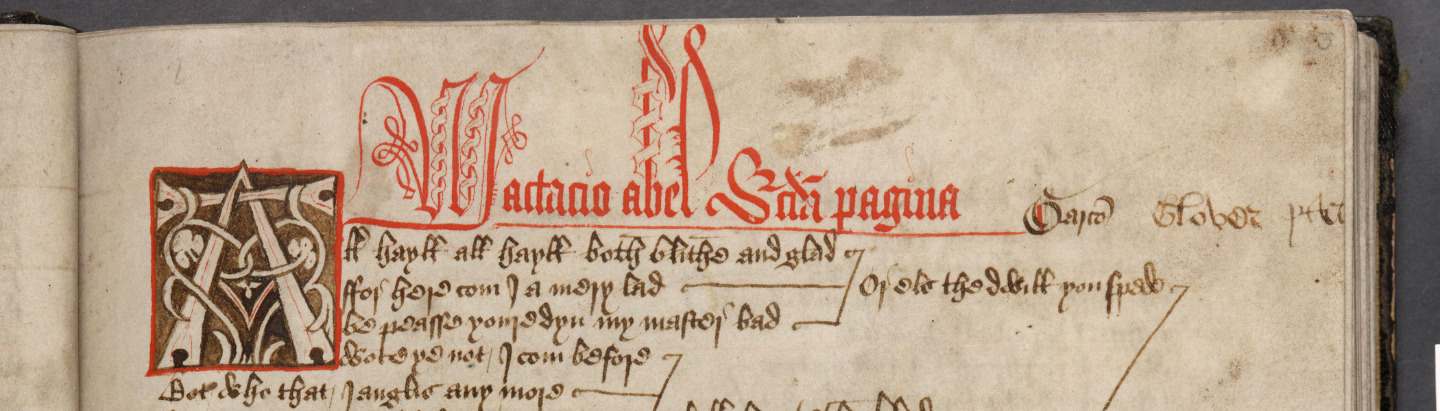 Mactacio abel Scda pagina Garcō Glover
All hayll all hayll both blithe and glad
ffor here com I a mery lad
Or els the dwill you spede
be peasse youre dyn my master bad
wote ye not I com before
Bot who that Ianglis any more